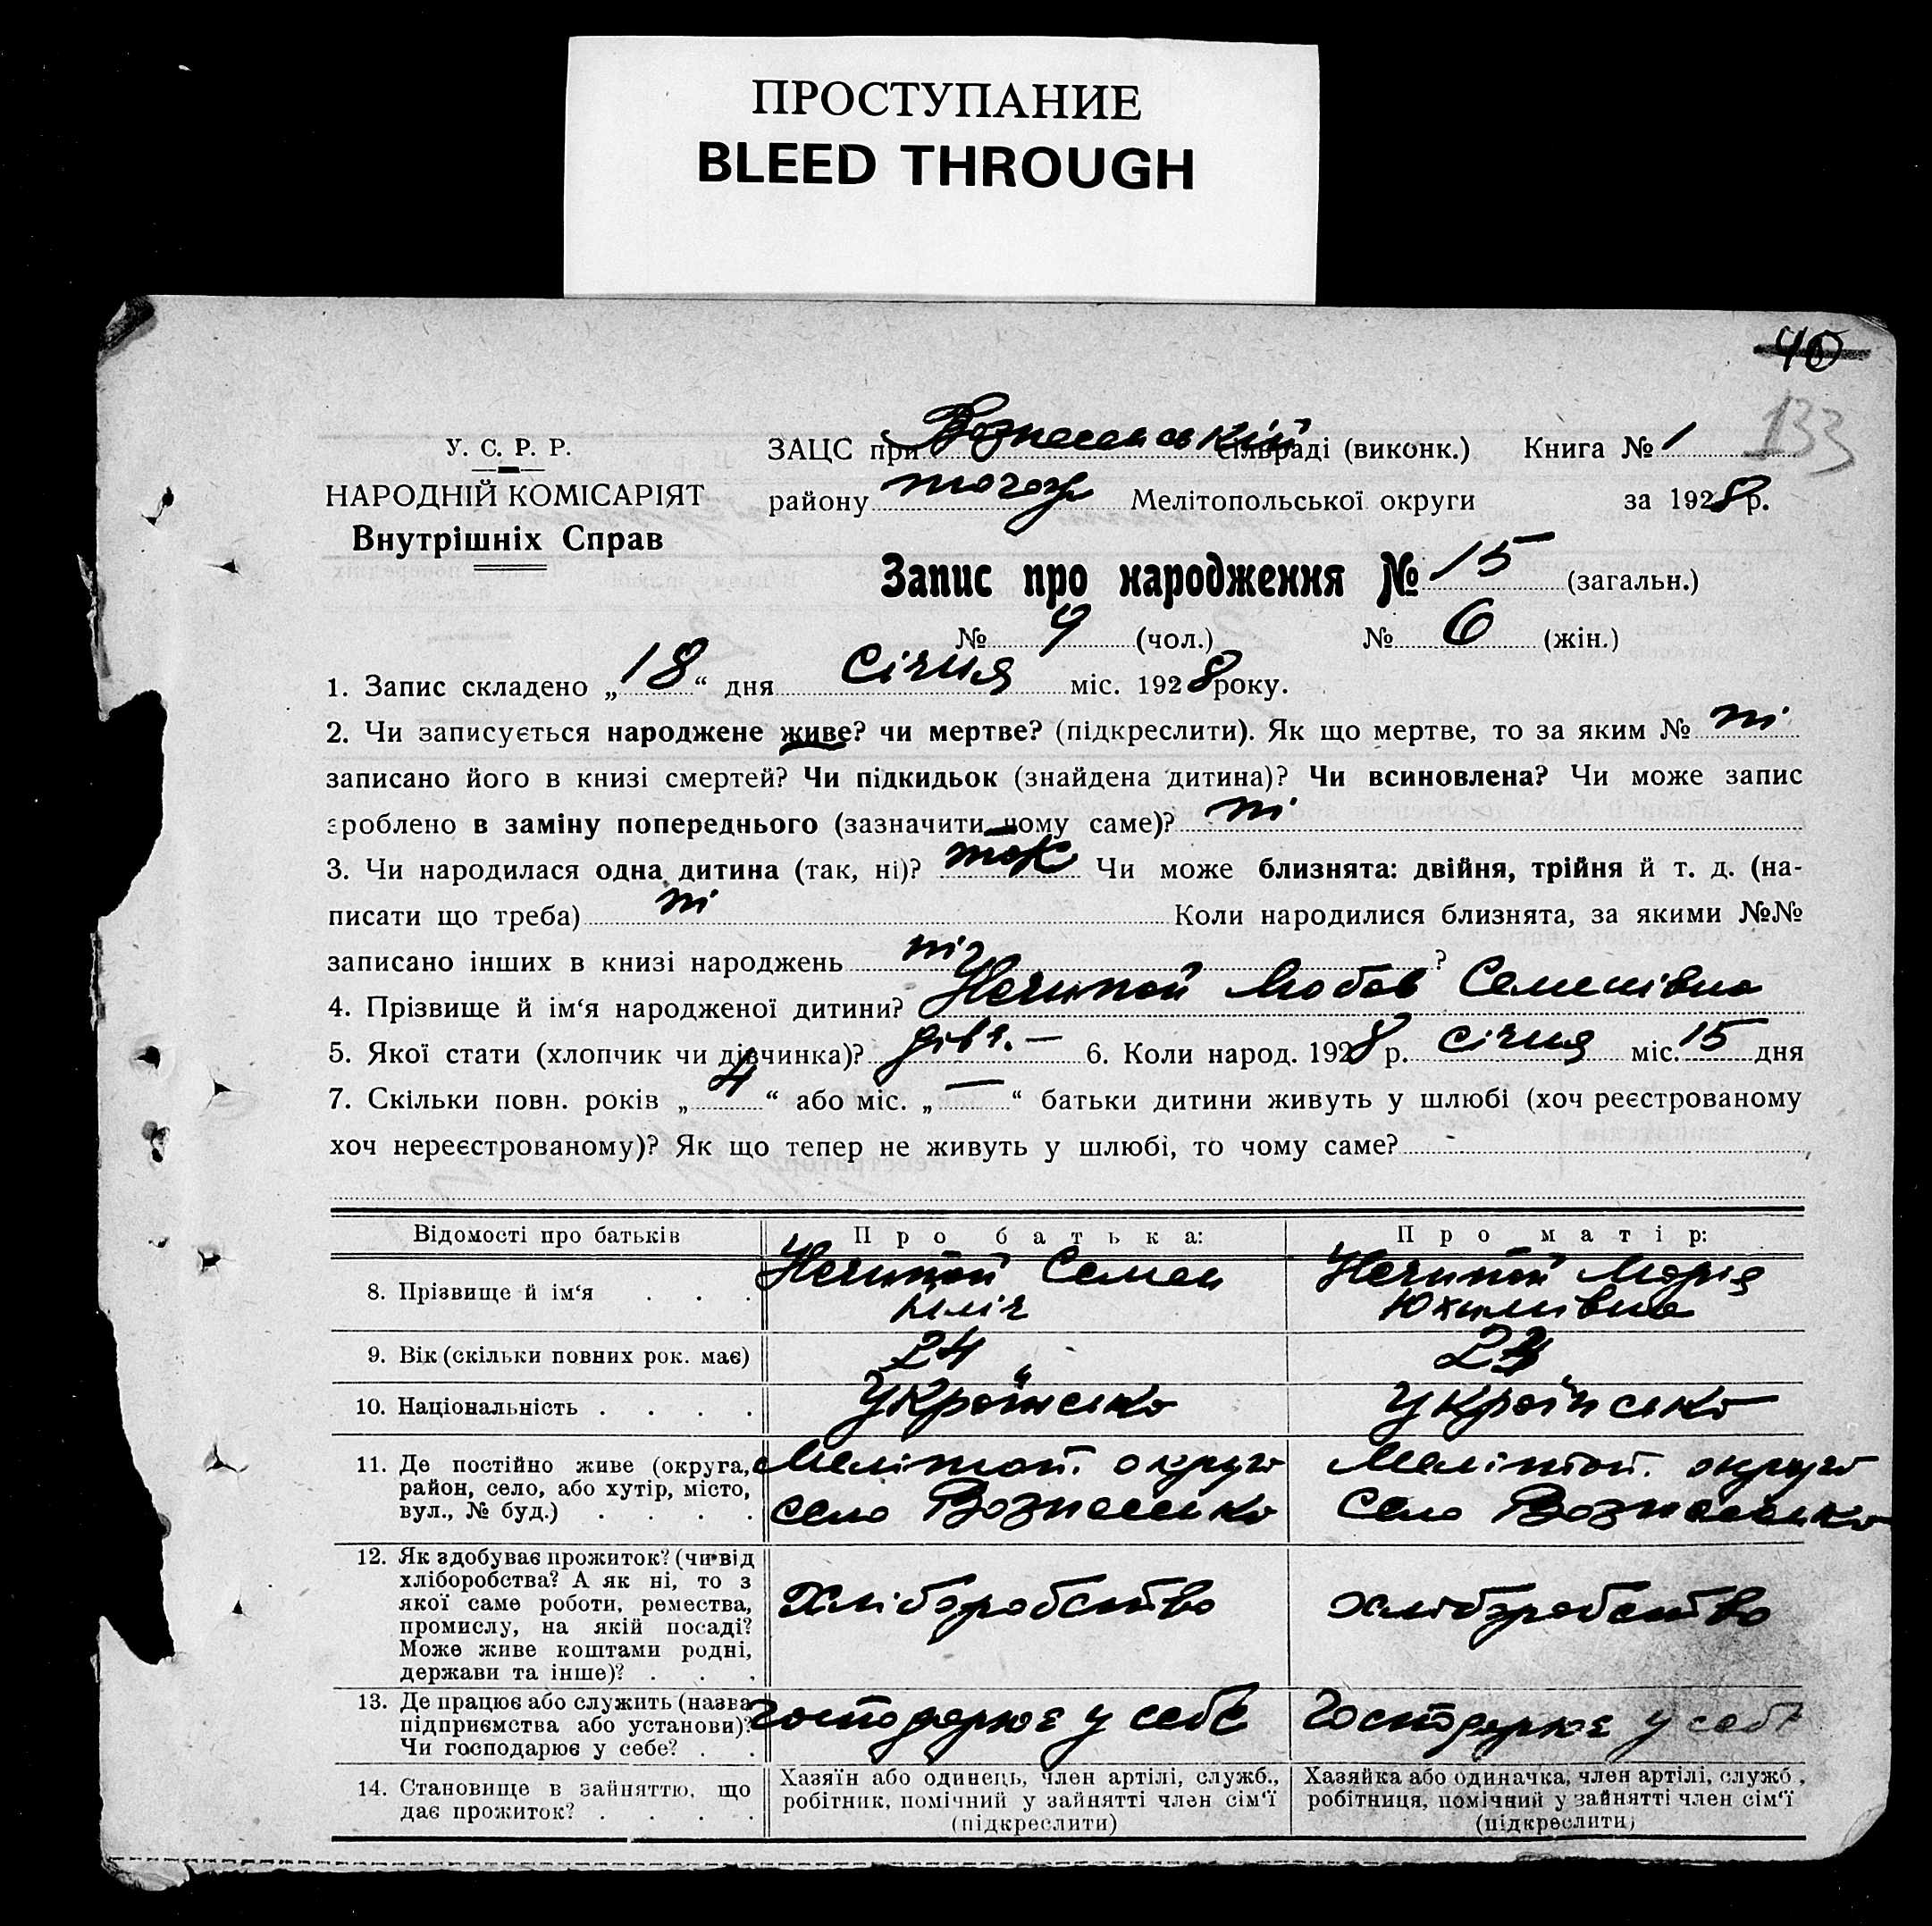 ПРОСТУПАНИЕ
BLEED THROUGH
40
133
У. С. Р. Р.
НАРОДНІЙ КОМІСАРІЯТ
Внутрішніх Справ
ЗАЦС при Вознесенській сільраді (виконк.) Книга № 1
району Мелітопольської округи за 1928 р.
Запис про народження № 15 (загальн.)
№ 9 (чол.) № 6 (жін.)
1. Запис складено „18“ дня січня міс. 1928 року.
2. Чи записується народжене живе? чи мертве? (підкреслити). Як що мертве, то за яким № ні
записано його в книзі смертей? Чи підкидьок (знайдена дитина)? Чи всиновлена? Чи може запис
зроблено в заміну попереднього (зазначити чому саме)? ні
3. Чи народилася одна дитина (так, ні)? так Чи може близнята: двійня, трійня й т. д. (на-
писати що треба) ні Коли народилися близнята, за якими №№
записано інших в книзі народжень ні ?
4. Прізвище й ім‘я народженої дитини? Нечипай Любов Семенівна
5. Якої стати (хлопчик чи дівчинка)? дівч. — 6. Коли народ. 1928 р. січня міс. 15 дня
7. Скільки повн. років „4“ або міс. „—“ батьки дитини живуть у шлюбі (хоч реєстрованому
хоч нереєстрованому)? Як що тепер не живуть у шлюбі, то чому саме?
Відомості про батьків Про батька: Про матір:
8. Прізвище й ім‘я . . . Нечипай Семен Ілліч Нечипай Марія Юхимівна
9. Вік (скільки повних рок. має) 24 23
10. Національність . . . . Українсько українсько
11. Де постійно живе (округа, Мелітоп. округа Мелітоп. округа
район, село, або хутір, місто, село Вознесенка село Вознесенка
вул., № буд.) . . . .
12. Як здобуває прожиток? (чи від
хліборобства? А як ні, то з
якої саме роботи, ремества, Хліборобство хліборобство
промислу, на якій посаді?
Може живе коштами родні,
держави та інше)? . . .
13. Де працює або служить (назва
підприємства або установи)? господарює у себе Господарює у себе
Чи господарює у себе? . .
14. Становище в зайняттю, що Хазяїн або одинець, член артілі, служб., Хазяйка або одиначка, член артілі, служб.,
дає прожиток? . . . . робітник, помічний у зайнятті член сім‘ї робітниця, помічний у зайнятті член сім‘ї
(підкреслити) (підкреслити)